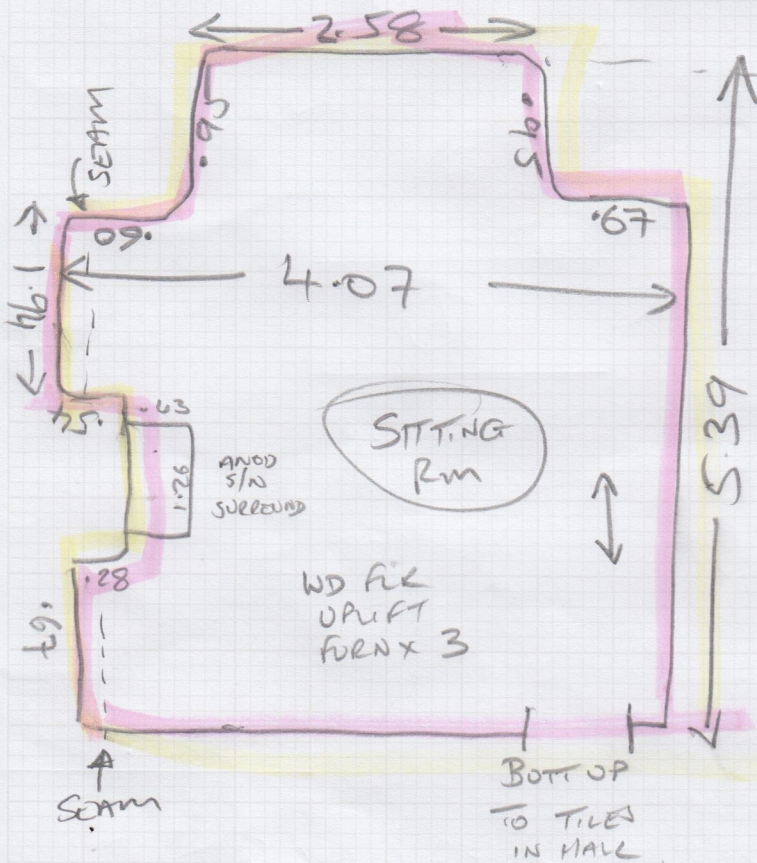 2.58
SEAM
.95
.95
.60
.67
1.94
4.07
5.39
.54
.43
1.26
ANOD
S/N
SURROUND
SITTING
Rm
.28
.67
WD FLR
UPLIFT
FURN X 3
SEAM
BUTT UP
TO TILES
IN HALL